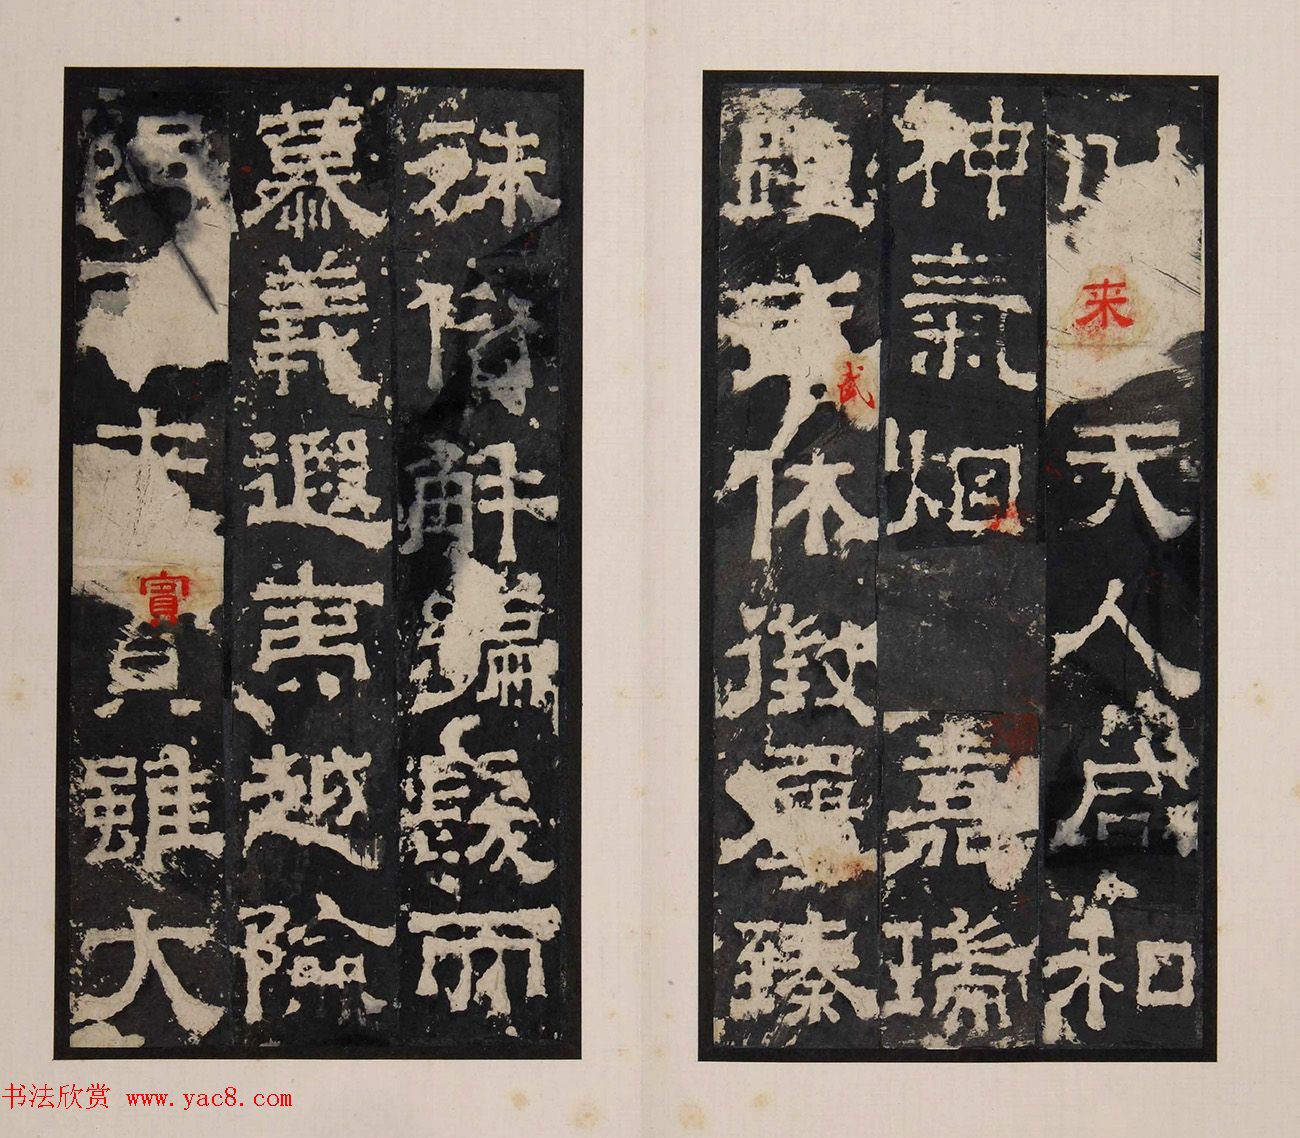 以来天人咸和
神氣烟嘉瑞
踵武休徵屢臻
殊俗解編髮而
慕義遐夷越險
阻賓雖大
书法欣赏 www.yac8.com